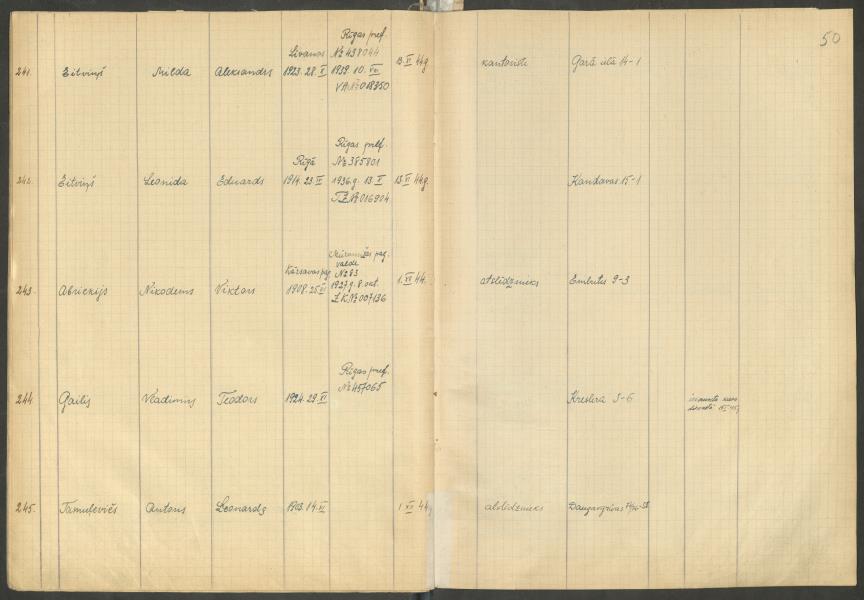 50
241. Eitviņš Milda Aleksandrs
Līvānos
1923. 28. V
Rīgas pref.
№ 438044
1939. 10. VII
VA № 018350
13. VI 44g. kantoristi Garā ielā 14-1
242. Eitviņš Leonida Eduards
Rīgā
1914. 23. IV
Rīgas pref.
№ 385801
1936.g. 13. V
TZ № 016904
13. VI 44g. Kandavas 15-1
243. Abrickijs Nikodems Viktors
Kārsavas pag.
1908. 25. VI
pag.
valdē
№ 83
1927.g. 8. okt.
Z.K. № 007136
1. VII 44. atslēdznieks Embutes 9-3
244 Gailis Vladimirs Teodors
1924. 29. VI
Rīgas pref.
№ 457065
Krestiņa 3-6
245. Tamuļevičs Antons Leonards
1903. 14. VI
1 VII 44g atslēdznieks Daugavgrīvas